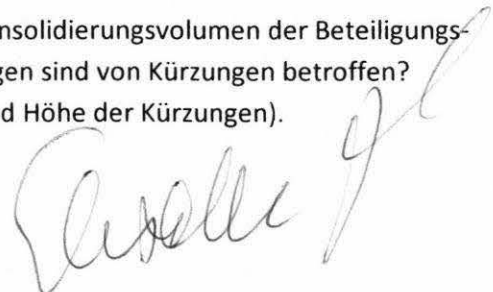 nsolidierungsvolumen der Beteiligungs-
gen sind von Kürzungen betroffen?
d Höhe der Kürzungen).